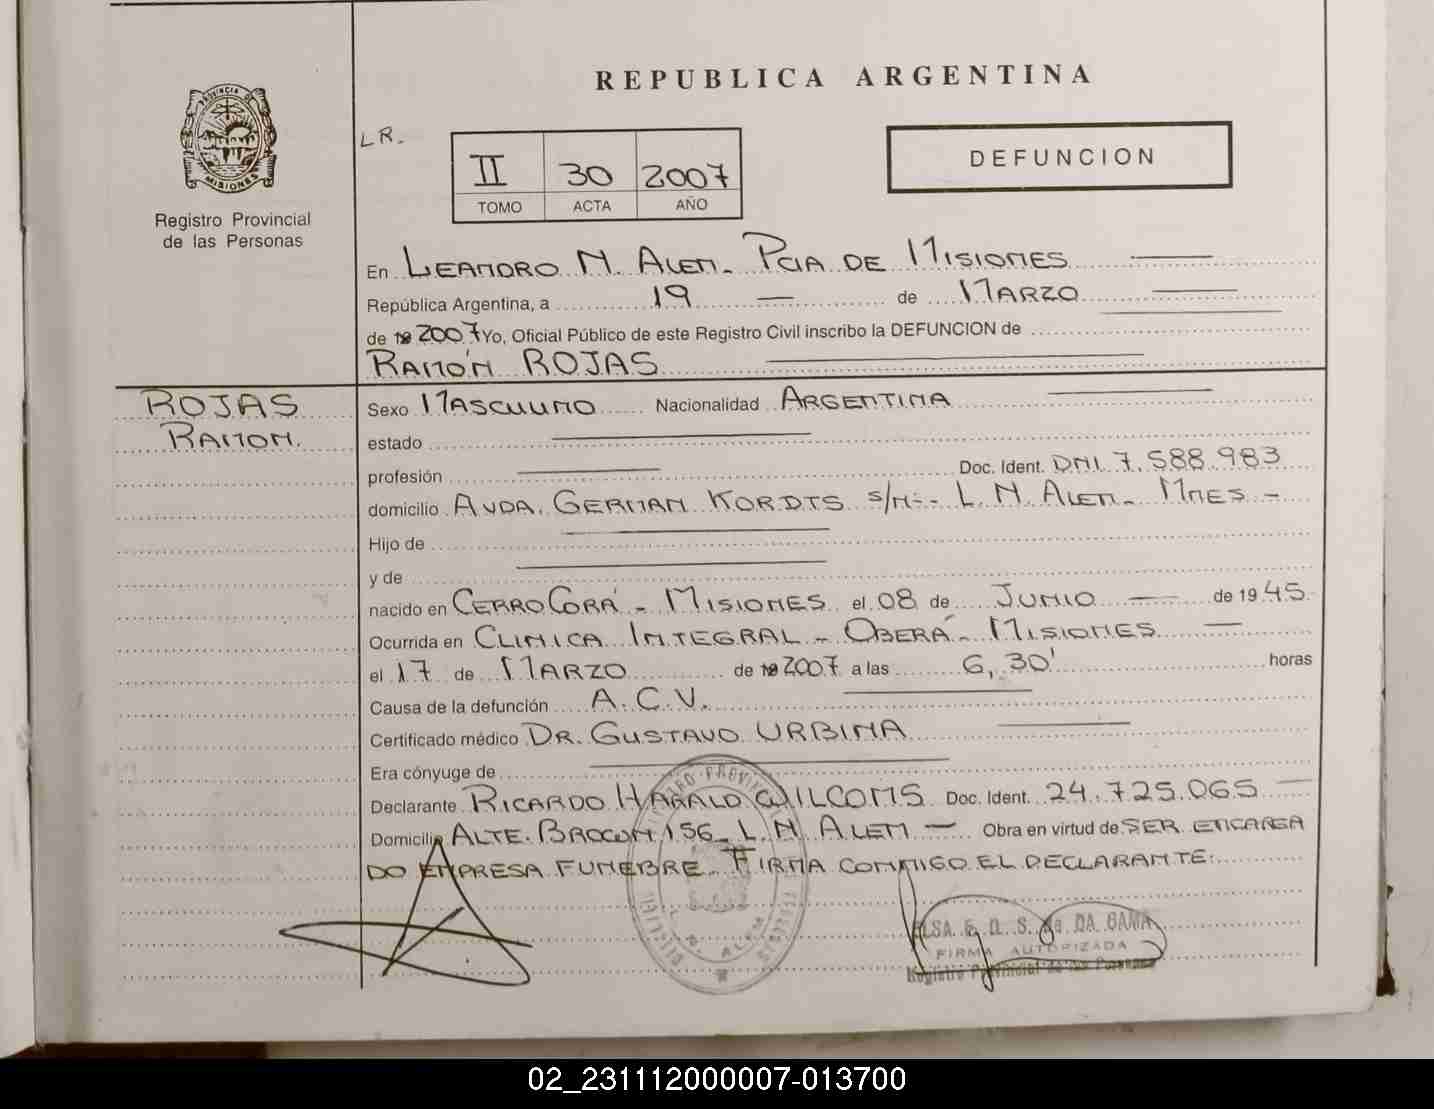 REPUBLICA ARGENTINA
PROVINCIA DE
MISIONES
Registro Provincial
de las Personas
LR.
II 30 2007
TOMO ACTA AÑO
DEFUNCION
En LEANDRO N. ALEM. PCIA DE MISIONES
República Argentina, a 19 de MARZO
de 19 2007 Yo, Oficial Público de este Registro Civil inscribo la DEFUNCION de
RAMÓN ROJAS
ROJAS
RAMON.
Sexo MASCULINO Nacionalidad ARGENTINA
estado
profesión Doc. Ident. DNI. 7.588.983
domicilio AVDA. GERMAN KORDTS S/N-- L. N. ALEM- MNES -
Hijo de
y de
nacido en CERRO CORÁ - MISIONES el 08 de JUNIO de 19 45
Ocurrida en CLINICA INTEGRAL - OBERÁ - MISIONES
el 17 de MARZO de 19 2007 a las 6,30' horas
Causa de la defunción A.C.V.
Certificado médico DR. GUSTAVO URBINA
Era cónyuge de
Declarante RICARDO HARALD WILCOMS Doc. Ident. 24.725.065
Domicilio ALTE. BROWN 156- L. N. ALEM - Obra en virtud de SER ENCARGA
DO EMPRESA FUNEBRE. FIRMA CONMIGO EL DECLARANTE.
L. N. ALEM
ELSA E. D. S. de DA GAMA
FIRMA AUTORIZADA
Registro Provincial de las Personas
02_231112000007-013700